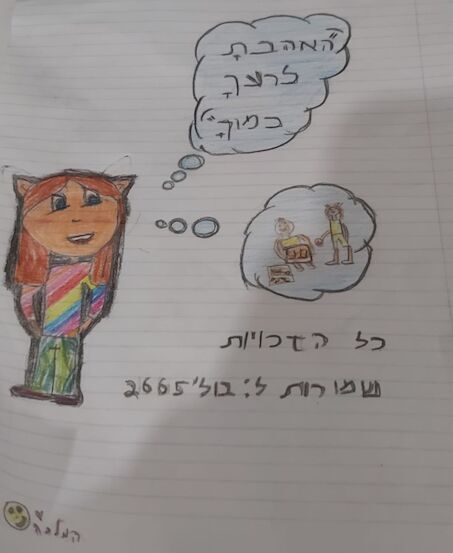 ״ואהבתָ
לרעךָ
כמוךָ״
כל הזכויות
שמורות ל: בול'2665
המלכה